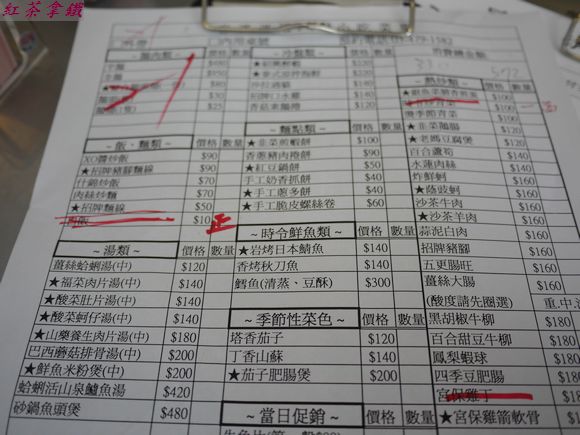 紅茶拿鐵
價格 數量
~ 冷盤類 ~ 價格 數量
$220
$220
$160
$30
$90
~ 飯、麵類 ~ 價格 數量
XO醬炒飯 $90
★招牌豬腳麵線 $90
什錦炒飯 $70
肉絲炒麵 $70
★招牌麵線 $50
白飯 $10 正
~ 湯類 ~ 價格 數量
薑絲蛤蜊湯(中) $120
★福菜肉片湯(中) $140
★酸菜肚片湯(中) $140
★酸菜蚵仔湯(中) $140
★山藥養生肉片湯(中) $180
巴西蘑菇排骨湯(中) $200
★鮮魚米粉煲(中) $200
蛤蜊活山泉鱸魚湯 $420
砂鍋魚頭煲 $480
香菇素腸捲
~ 麵點類 ~ 價格 數量
★韭菜煎蝦餅 $100
香蔥豬肉捲餅 $90
★紅豆鍋餅 $50
手工奶香抓餅 $40
★手工蔥多餅 $40
★手工脆皮螺絲卷 $60
~ 時令鮮魚類 ~ 價格 數量
★岩烤日本鯖魚 $140
香烤秋刀魚 $140
鱈魚(清蒸、豆酥) $300
~ 季節性菜色 ~ 價格 數量
塔香茄子 $120
丁香山蘇 $140
★茄子肥腸煲 $200
~ 當日促銷 ~ 價格 數量
~ 熱炒類 ~ 價格
$100
$100
應季節青菜 $100
★韭菜鵝腸 $120
★老媽豆腐煲 $120
百合蘆筍 $140
水蓮肉絲 $160
炸鮮蚵 $160
★蔭豉蚵 $160
沙茶牛肉 $160
★沙茶羊肉 $160
蒜泥白肉 $160
招牌豬腳 $160
五更腸旺 $160
薑絲大腸 $160
(酸度請先圈選) 重.中
黑胡椒牛柳 $180
百合甜豆牛柳 $180
鳳梨蝦球 $180
四季豆肥腸
宮保雞丁
★宮保雞箭軟骨